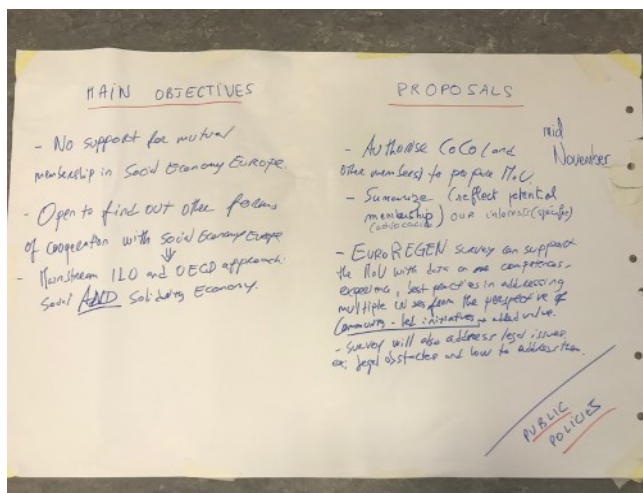 MAIN OBJECTIVES
- No support for mutual
membership in Social Economy Europe.
- Open to find out other forms
of cooperation with Social Economy Europe
- Mainstream ILO and OECD approach:
Social AND Solidarity Economy.
PROPOSALS
mid
November
- Authorise CoCo (and
other members) to prepare MoU
- Summarize (reflect potential
membership) our interests (specific)
- EuroREGEN survey can support
the MoU with data on competences,
experience, best practices in addressing
multiple crises from the perspective of
Community-led initiatives added value.
- Survey will also address legal issues,
ex. legal obstacles and how to address them.
PUBLIC
POLICIES